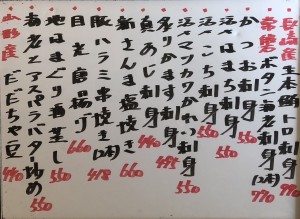 長崎産生本鮪トロ刺身 990
常磐ボタン海老刺身(2尾) 770
かつお刺身 550
活〆はまち刺身 550
活〆こち刺身
活〆マツカワかれい刺身 550
炙りかます刺身 495
真あじ刺身 440
新さんま塩焼き 660
豚ハラミ串焼き(2本) 418
目光唐揚げ 660
地はまぐり酒蒸し 550
海老とアスパラバター炒め 550
山形産だだちゃ豆 440